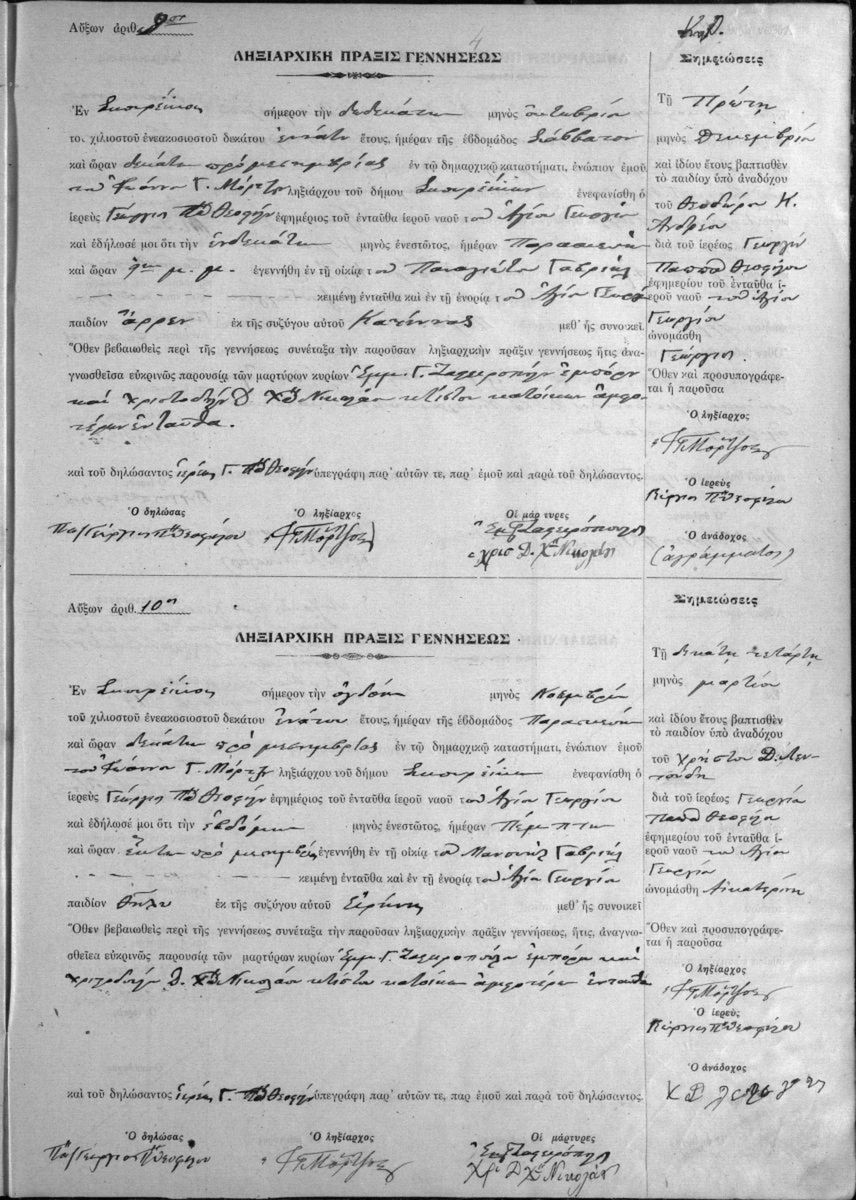 Αὔξων ἀριθ. 9ον
ΛΗΞΙΑΡΧΙΚΗ ΠΡΑΞΙΣ ΓΕΝΝΗΣΕΩΣ
Ἐν σήμερον τὴν δωδεκάτην μηνὸς Ὀκτωβρίου
τοῦ χιλιοστοῦ ἐνεακοσιοστοῦ δεκάτου ἐνάτου ἔτους, ἡμέραν τῆς ἑβδομάδος Σάββατον
καὶ ὥραν δεκάτην πρὸ μεσημβρίας ἐν τῷ δημαρχικῷ καταστήματι, ἐνώπιον ἐμοῦ
τοῦ Ἰωάννου Γ. Μόρτζου ληξιάρχου τοῦ δήμου ἐνεφανίσθη ὁ
ἱερεὺς Γεώργιος Π Θεοφίλου ἐφημέριος τοῦ ἐνταῦθα ἱεροῦ ναοῦ τοῦ Ἁγίου Γεωργίου
καὶ ἐδήλωσέ μοι ὅτι τὴν ἑνδεκάτην μηνὸς ἐνεστῶτος, ἡμέραν Παρασκευὴν
καὶ ὥραν μ. μ. ἐγεννήθη ἐν τῇ οἰκίᾳ τοῦ Παναγιώτου Γαβριὴλ
κειμένῃ ἐνταῦθα καὶ ἐν τῇ ἐνορίᾳ τοῦ Ἁγίου Γεωργίου
παιδίον ἄρρεν ἐκ τῆς συζύγου αὐτοῦ Κατίνας μεθ᾽ ἧς συνοικεῖ
Ὅθεν βεβαιωθεὶς περὶ τῆς γεννήσεως συνέταξα τὴν παροῦσαν ληξιαρχικὴν πρᾶξιν γεννήσεως ἥτις ἀνα-
γνωσθεῖσα εὐκρινῶς παρουσίᾳ τῶν μαρτύρων κυρίων Ἐμμ. Γ. Ζαφειροπούλου ἐμπόρου
καὶ Χριστοδούλου Δ. Χ Νικολάου κτίστου κατοίκων ἀμφο-
τέρων ἐνταῦθα.
καὶ τοῦ δηλώσαντος ἱερέως Γ. Π Θεοφίλου ὑπεγράφη παρ᾽ αὐτῶν τε, παρ᾽ ἐμοῦ καὶ παρὰ τοῦ δηλώσαντος.
Ὁ δηλώσας Ὁ ληξίαρχος Οἱ μάρτυρες
Γεώργιος Π Θεοφίλου Ι Γ Μόρτζος Ἐμ Γ Ζαφειρόπουλος
Χρισ Δ. Χ Νικολάου
Σημειώσεις
Τῇ Πρώτῃ
μηνὸς Δεκεμβρίου
καὶ ἰδίου ἔτους βαπτισθὲν
τὸ παιδίον ὑπὸ ἀναδόχου
τοῦ Θεοδώρου Κ.
Ἀνδρέου
διὰ τοῦ ἱερέως Γεωργίου
Παππᾶ Θεοφίλου
ἐφημερίου τοῦ ἐνταῦθα ἱ-
εροῦ ναοῦ τοῦ Ἁγίου
Γεωργίου
ὠνομάσθη
Γεώργιος
Ὅθεν καὶ προσυπογράφε-
ται ἡ παροῦσα
Ὁ ληξίαρχος
Ι Γ Μόρτζος
Ὁ ἱερεὺς
Γεώργιος Π Θεοφίλου
Ὁ ἀνάδοχος
(ἀγράμματος)
Αὔξων ἀριθ. 10η
ΛΗΞΙΑΡΧΙΚΗ ΠΡΑΞΙΣ ΓΕΝΝΗΣΕΩΣ
Ἐν σήμερον τὴν ὀγδόην μηνὸς Νοεμβρίου
τοῦ χιλιοστοῦ ἐνεακοσιοστοῦ δεκάτου ἐνάτου ἔτους, ἡμέραν τῆς ἑβδομάδος Παρασκευὴν
καὶ ὥραν δεκάτην πρὸ μεσημβρίας ἐν τῷ δημαρχικῷ καταστήματι, ἐνώπιον ἐμοῦ
τοῦ Ἰωάννου Γ. Μόρτζου ληξιάρχου τοῦ δήμου ἐνεφανίσθη ὁ
ἱερεὺς Γεώργιος Π Θεοφίλου ἐφημέριος τοῦ ἐνταῦθα ἱεροῦ ναοῦ τοῦ Ἁγίου Γεωργίου
καὶ ἐδήλωσέ μοι ὅτι τὴν ἑβδόμην μηνὸς ἐνεστῶτος, ἡμέραν Πέμπτην
καὶ ὥραν ἕκτην πρὸ μεσημβρίας ἐγεννήθη ἐν τῇ οἰκίᾳ τοῦ Μανουὴλ Γαβριὴλ
κειμένῃ ἐνταῦθα καὶ ἐν τῇ ἐνορίᾳ τοῦ Ἁγίου Γεωργίου
παιδίον θῆλυ ἐκ τῆς συζύγου αὐτοῦ Εἰρήνης μεθ᾽ ἧς συνοικεῖ
Ὅθεν βεβαιωθεὶς περὶ τῆς γεννήσεως συνέταξα τὴν παροῦσαν ληξιαρχικὴν πρᾶξιν γεννήσεως, ἥτις, ἀναγνω-
σθεῖσα εὐκρινῶς παρουσίᾳ τῶν μαρτύρων κυρίων Ἐμμ. Γ. Ζαφειροπούλου ἐμπόρου καὶ
Χριστοδούλου Δ. Χ Νικολάου κτίστου κατοίκων ἀμφοτέρων ἐνταῦθα
καὶ τοῦ δηλώσαντος ἱερέως Γ. Π Θεοφίλου ὑπεγράφη παρ᾽ αὐτῶν τε, παρ ἐμοῦ καὶ παρὰ τοῦ δηλώσαντος.
Ὁ δηλώσας Ὁ ληξίαρχος Οἱ μάρτυρες
Γεώργιος Π Θεοφίλου Ι Γ Μόρτζος Ἐμ Γ Ζαφειρόπουλος
Χρ Δ Χ Νικολάου
Σημειώσεις
Τῇ δεκάτῃ τετάρτῃ
μηνὸς Μαρτίου
καὶ ἰδίου ἔτους βαπτισθὲν
τὸ παιδίον ὑπὸ ἀναδόχου
τοῦ Χρήστου Δ.
διὰ τοῦ ἱερέως Γεωργίου
Παπᾶ Θεοφίλου
ἐφημερίου τοῦ ἐνταῦθα ἱ-
εροῦ ναοῦ τοῦ Ἁγίου
Γεωργίου
ὠνομάσθη Αἰκατερίνη
Ὅθεν καὶ προσυπογράφε-
ται ἡ παροῦσα
Ὁ ληξίαρχος
Ι Γ Μόρτζος
Ὁ ἱερεὺς
Γεώργιος Π Θεοφίλου
Ὁ ἀνάδοχος
Χ Δ